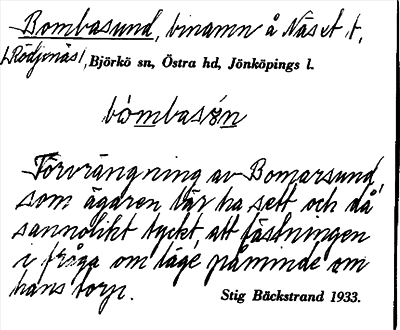 Bombasund, binamn å Näset t.
/Rödjenäs/, Björkö sn, Östra hd, Jönköpings l.
bòmbasø̀n
Förvrängning av Bomarsund,
som ägaren lär ha sett och då
sannolikt tyckt, att fästningen
i fråga om läge påminde om
hans torp.
Stig Bäckstrand 1933.